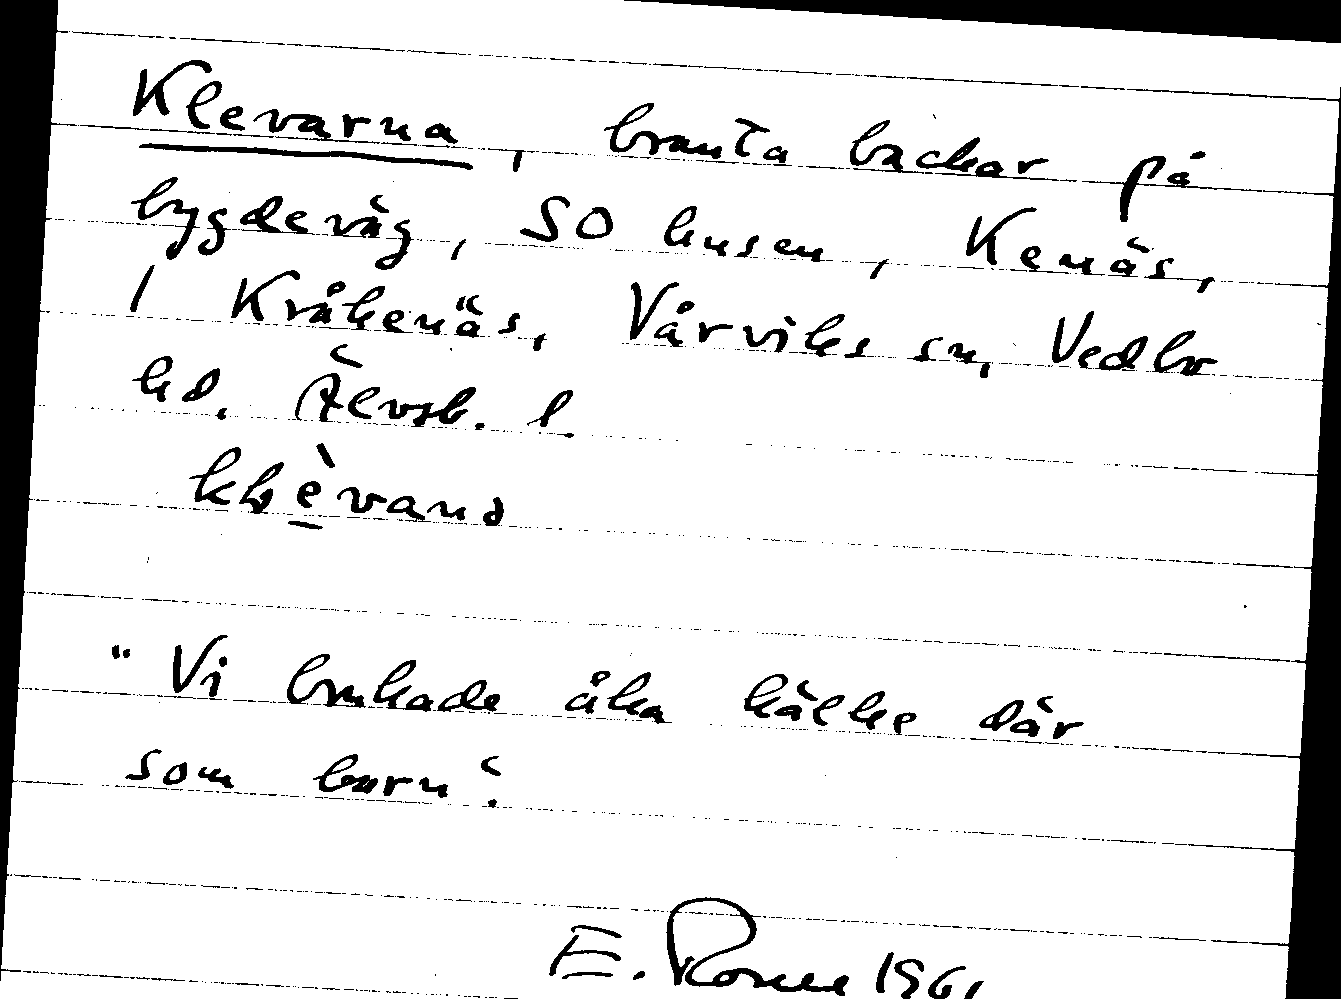 Klevarna, branta backar på
bygdeväg, SO husen, Kenäs,
1 Kråkenäs, Vårviks sn, Vedbo
hd. Älvsb. l.
"Vi brukade åka kälke där
som barn".
E. 1961